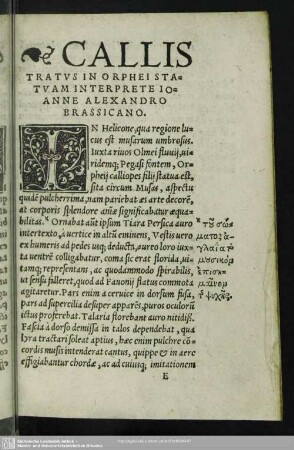 CALLIS
TRATVS IN ORPHEI STA-
TVAM INTERPRETE IO-
ANNE ALEXANDRO
BRASSICANO.
IN Helicone, qua regione lu
cus est musarum umbrosus.
Iuxta riuos Olmei fluuij, ui-
ridemq; Pegasi fontem, Or-
pheij calliopes filij statua est,
sita circum Musas, aspectu
quadē pulcherrima, nam pariebat æs arte decorē,
at corporis splendore animę significabatur æqua-
bilitas. Ornabat aūt ipsum Tiara Persica auro
intertexto, à uertice in altū eminens, Vestis uero
ex humeris ad pedes usq; deducta, aureo loro iux-
ta uentrē colligabatur, coma sic erat florida, ui-
tamq; repræsentans, ac quodammodo spirabilis,
ut sensu falleret, quod ad Fauonij flatus commota
agitaretur. Pars enim a ceruice in dorsum fusa,
pars ad supercilia desuper apparēs, puros oculorū
ictus proferebat. Talaria florebant auro nitidiss.
Fascia à dorso demissa in talos dependebat, qua
lyra tractari soleat aptius, hæc enim pulchre cō-
cordis musis intenderat cantus, quippe & in aere
effigiabantur chordæ, ac ad cuiusq; imitationem
τοῦ σώ-
ματος
μουσικὸν
ἐπισκ-
ψυχῆς.
E